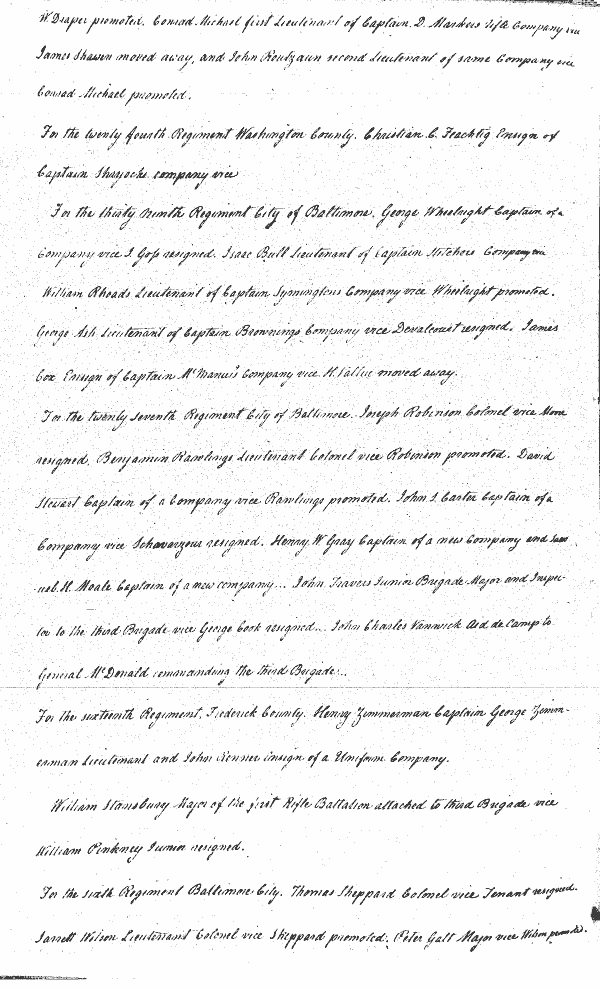 W. Draper promoted. Conrad Michael first Lieutenant of Captain D. Markers rifle Company vice
James Shawen moved away, and John Routzaun second Lieutenant of same Company vice
Conrad Michael promoted.
For the twenty fourth Regiment Washington County. Christian C. Feachtig Ensign of
Captain Shryocks company vice
For the thirty ninth Regiment City of Baltimore. George Wheelright Captain of a
Company vice I. Goss resigned. Isaac Bull Lieutenant of Captain Stitchers Company vice
William Rhoads Lieutenant of Captain Symingtons Company vice Wheelright promoted.
George Ash Lieutenant of Captain Brownings Company vice Devalcourt resigned. James
Cox Ensign of Captain McManus's Company vice H. moved away.
For the twenty seventh Regiment City of Baltimore. Joseph Robinson Colonel vice
resigned. Benjamin Rawlings Lieutenant Colonel vice Robinson promoted. David
Stewart Captain of a Company vice Rawlings promoted. John I. Carter Captain of a
Company vice Schwarzour resigned. Henry W Gray Captain of a new Company and Sam
-uel. H. Moale Captain of a new company... John Travers Junior Brigade Major and Inspec-
tor to the third Brigade vice George Cook resigned... John Charles Vanwick Aid de Camp to
General McDonald commanding the third Brigade...
For the sixteenth Regiment, Frederick County. Henry Zimmerman Captain George Zimm-
erman Lieutenant and John Renner ensign of a Uniform Company.
William Stansbury Major of the first Rifle Battalion attached to third Brigade vice
William Pinkney Junior resigned.
For the sixth Regiment Baltimore City. Thomas Sheppard Colonel vice Tenant resigned.
Jarrett Wilson Lieutenant Colonel vice Sheppard promoted. Peter Galt Major vice Wilson promoted.